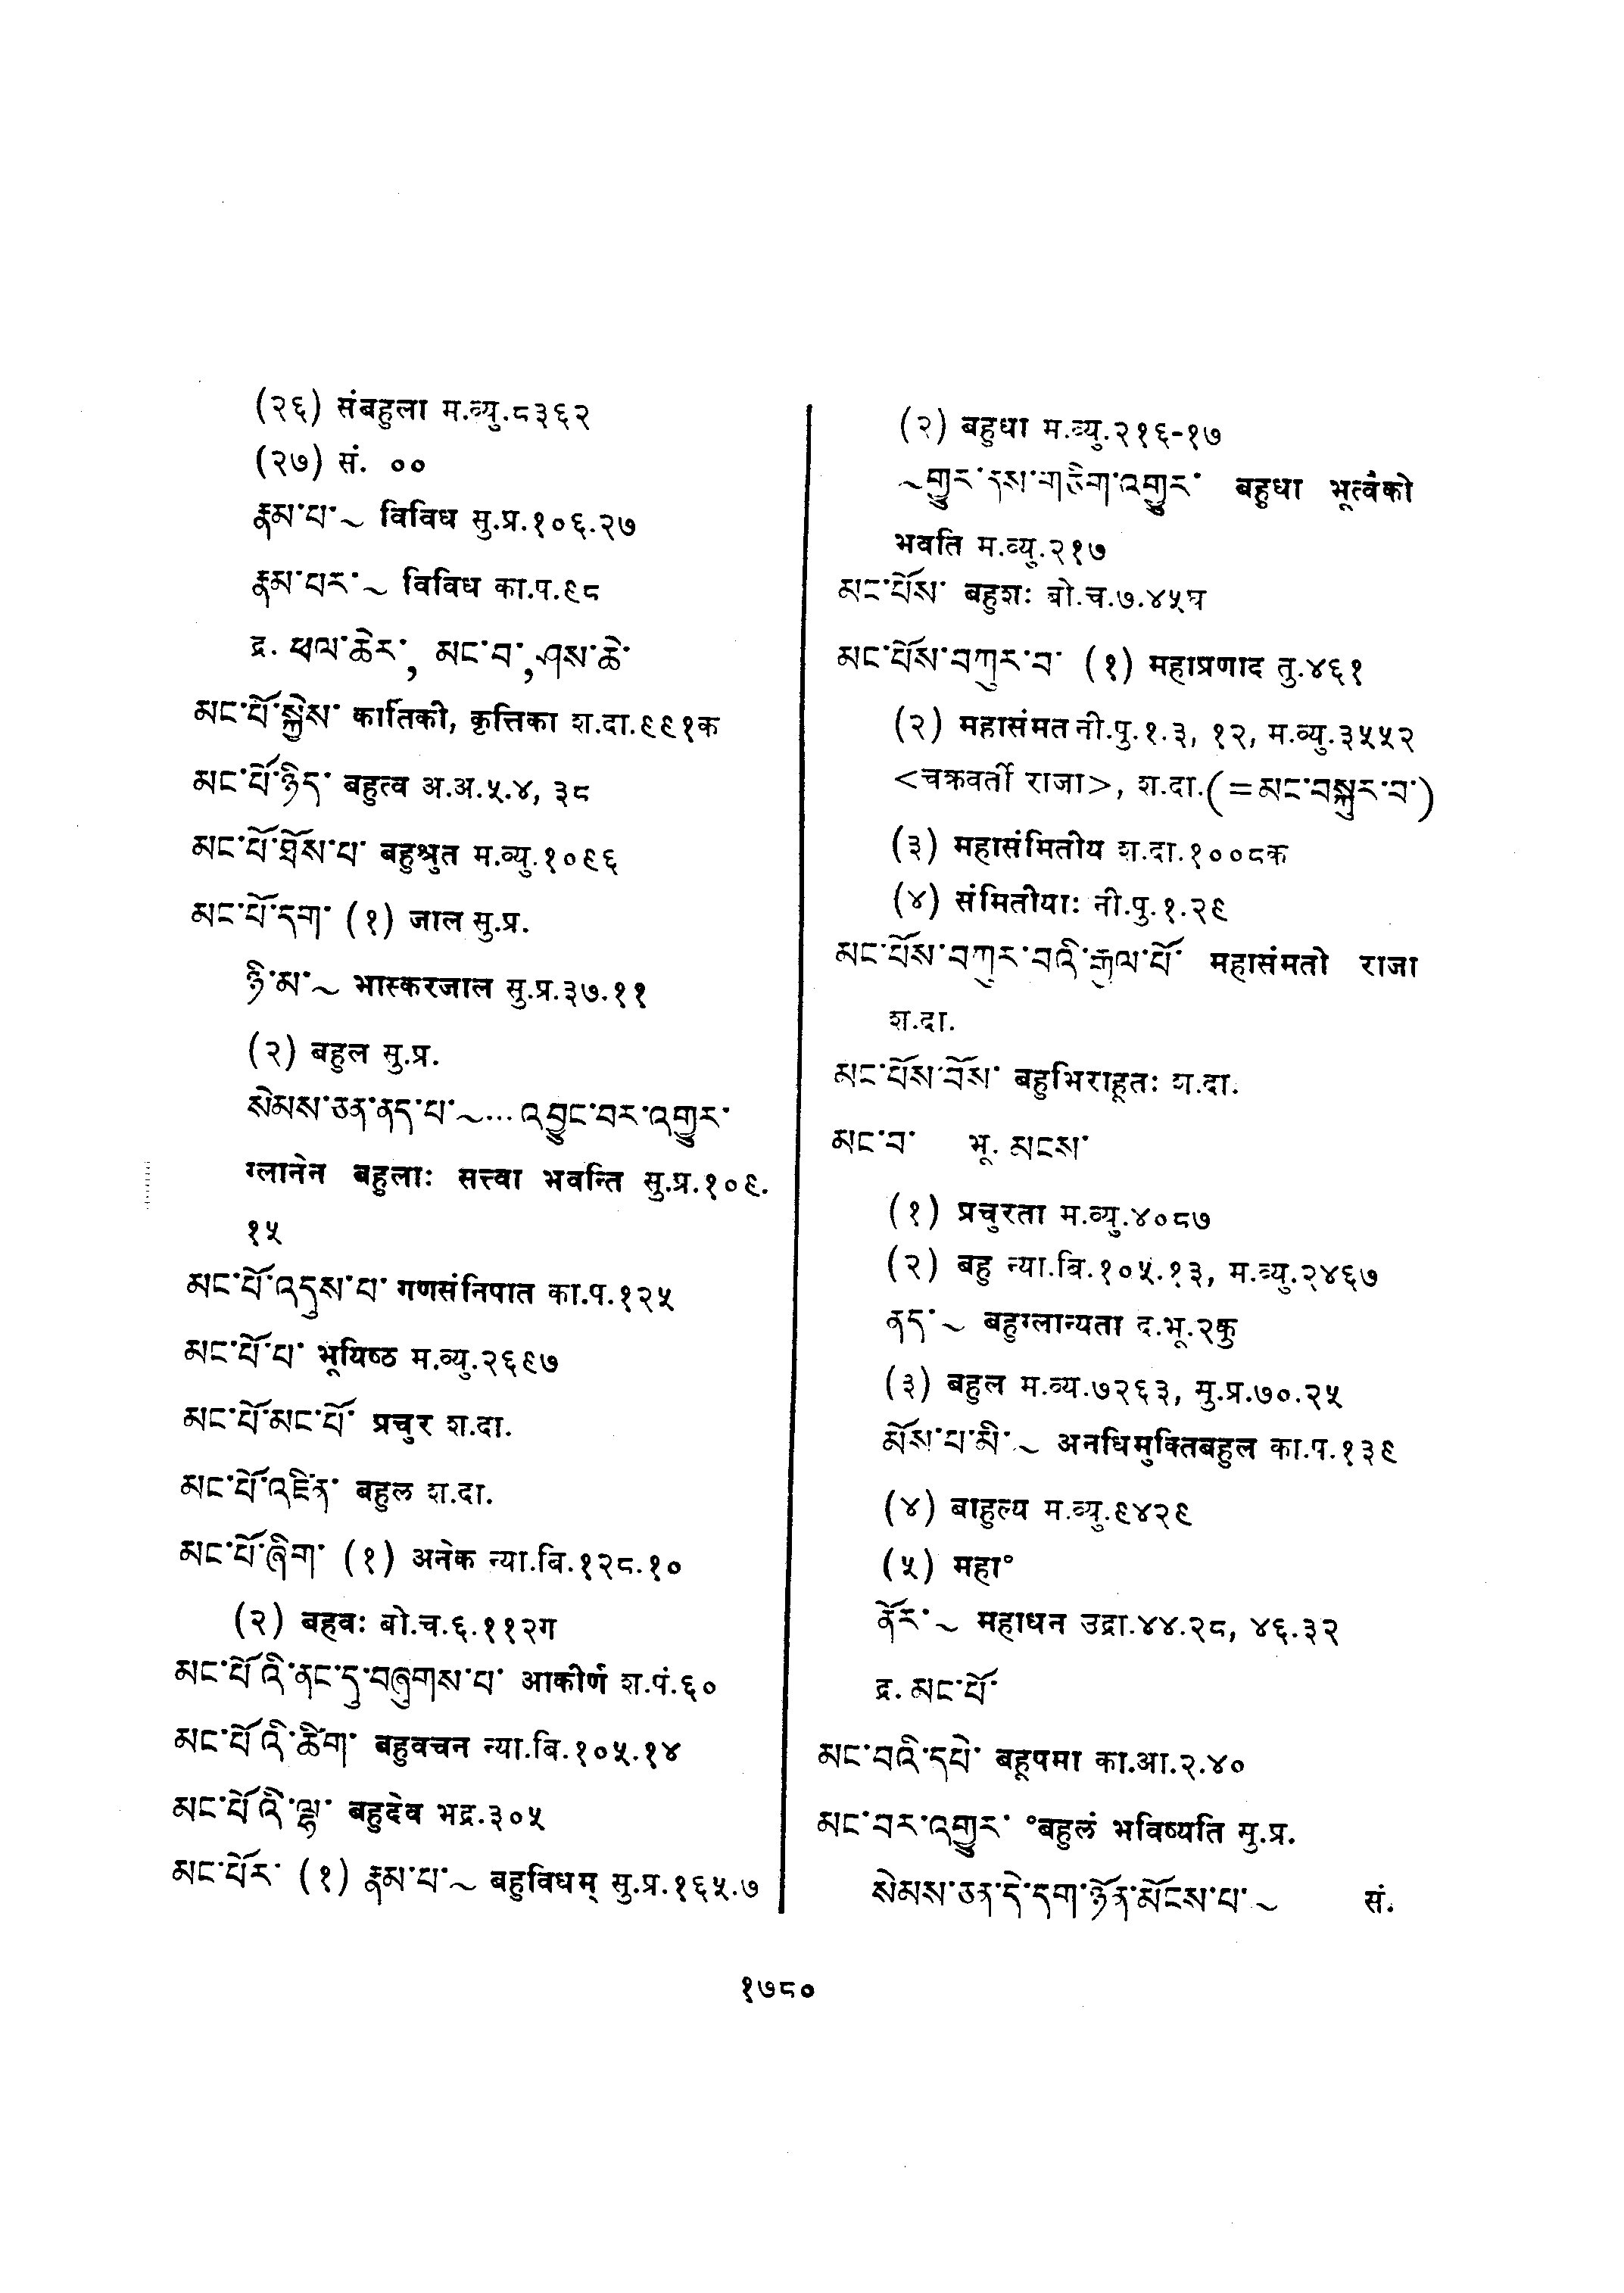 (२६) संबहुला म.व्यु.८३६२
(२७) सं. ००
རྣམ་པ་~ विविध सु.प्र.१०६.२७
རྣམ་པར་~ विविध का.प.९८
द्र. ཕལ་ཆེར་, མང་བ་, ཤས་ཆེ་
མང་པོ་སྐྱེས་ कार्तिकी, कृत्तिका श.दा.९९१क
མང་པོ་ཉིད་ बहुत्व अ.अ.५.४, ३८
མང་པོ་ཐོས་པ་ बहुश्रुत म.व्यु.१०९६
མང་པོ་དག་ (१) जाल सु.प्र.
ཉི་མ་~ भास्करजाल सु.प्र.३७.११
(२) बहुल सु.प्र.
སེམས་ཅན་ནད་པ་~... འབྱུང་བར་འགྱུར་
ग्लानेन बहुलाः सत्त्वा भवन्ति सु.प्र.१०९.
१५
མང་པོ་འདུས་པ་ गणसंनिपात का.प.१२५
མང་པོ་པ་ भूयिष्ठ म.व्यु.२६९७
མང་པོ་མང་པོ་ प्रचुर श.दा.
མང་པོ་འཛིན་ बहुल श.दा.
མང་པོ་ཞིག་ (१) अनेक न्या.बि.१२८.१०
(२) बहवः बो.च.६.११२ग
མང་པོའི་ནང་དུ་བཞུགས་པ་ आकीर्ण श.पं.६०
མང་པོའི་ཚིག་ बहुवचन न्या.बि.१०५.१४
མང་པོའི་ལྷ་ बहुदेव भद्र.३०५
མང་པོར་ (१) རྣམ་པ་~ बहुविधम् सु.प्र.१६५.७
(२) बहुधा म.व्यु.२१६-१७
~གྱུར་ནས་གཅིག་འགྱུར་ बहुधा भूत्वैको
भवति म.व्यु.२१७
མང་པོས་ बहुशः बो.च.७.४५घ
མང་པོས་བཀུར་བ་ (१) महाप्रणाद तु.४६१
(२) महासंमत नी.पु.१.३, १२, म.व्यु.३५५२
<चक्रवर्ती राजा>, श.दा.(=མང་བསྐུར་བ་)
(३) महासंमितीय श.दा.१००८क
(४) संमितीयाः नी.पु.१.२९
མང་པོས་བཀུར་བའི་རྒྱལ་པོ་ महासंमतो राजा
श.दा.
མང་པོས་བོས་ बहुभिराहूतः श.दा.
མང་བ་ भू. མངས་
(१) प्रचुरता म.व्यु.४०८७
(२) बहु न्या.बि.१०५.१३, म.व्यु.२४६७
ནད་~ बहुग्लान्यता द.भू.२कु
(३) बहुल म.व्य.७२६३, सु.प्र.७०.२५
མོས་པ་མི་~ अनधिमुक्तिबहुल का.प.१३९
(४) बाहुल्य म.व्यु.९४२९
(५) महा°
ནོར་~ महाधन उद्रा.४४.२८, ४६.३२
द्र. མང་པོ་
མང་བའི་དཔེ་ बहूपमा का.आ.२.४०
མང་བར་འགྱུར་ °बहुलं भविष्यति सु.प्र.
སེམས་ཅན་དེ་དག་ཉོན་མོངས་པ་~ सं.
१७८०